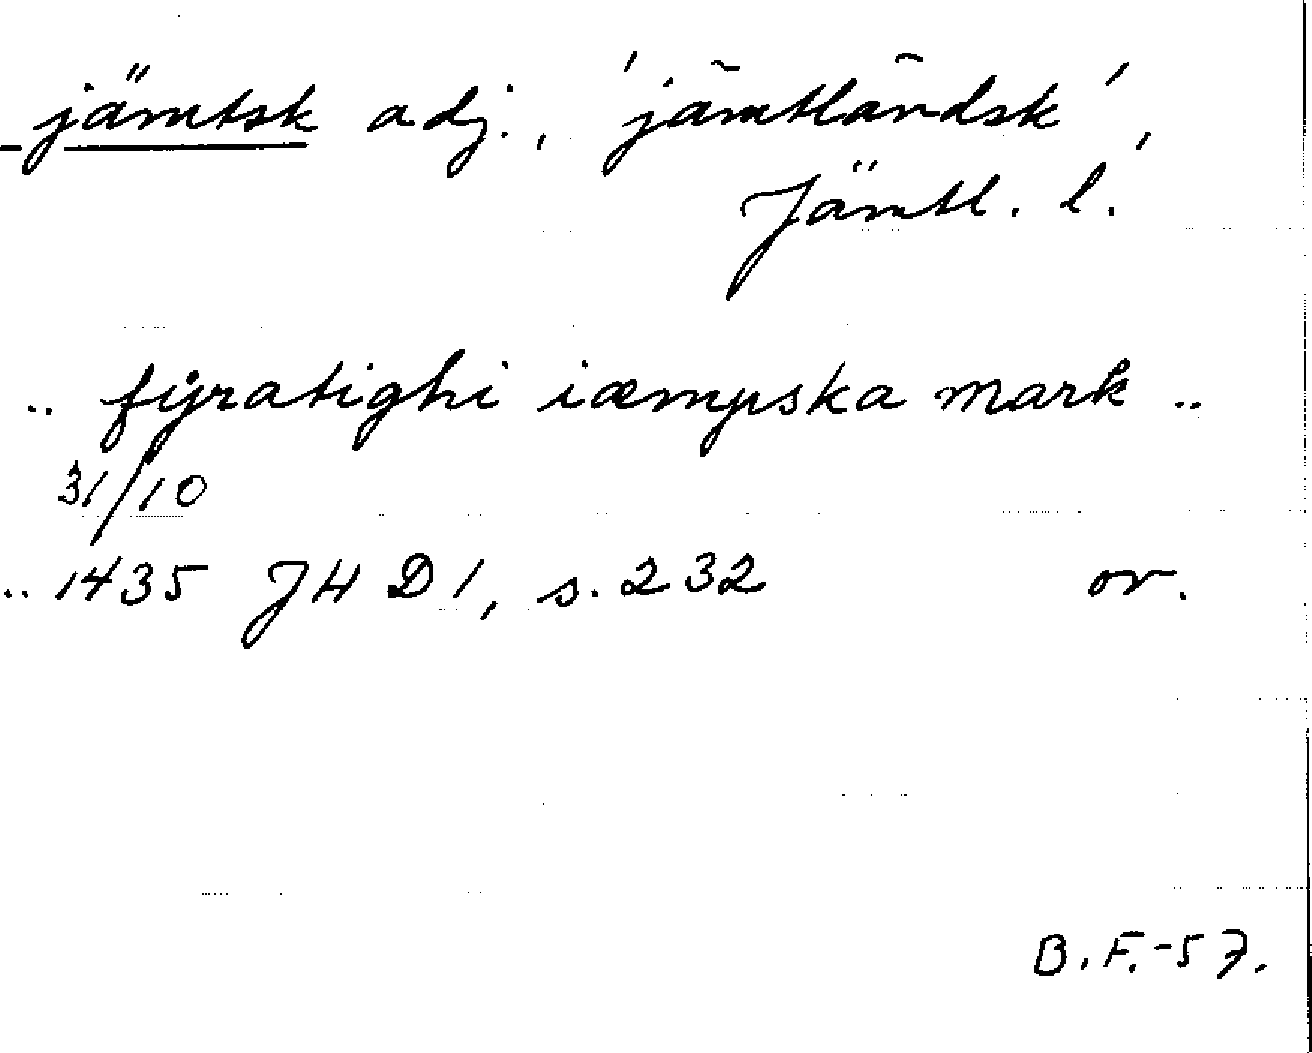 jämtsk adj., 'jämtländsk',
Jämtl. l.
.. fÿratighi iæmpska mark ..
31/10
.. 1435 JHD 1, s. 232 or.
B.F.-57.